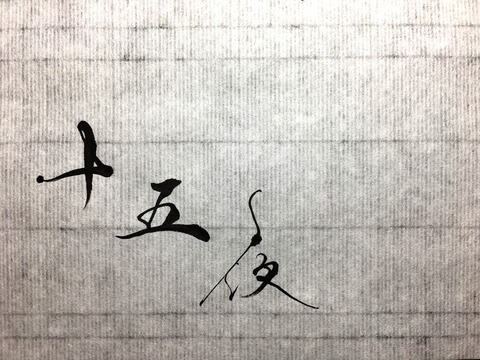 十五夜